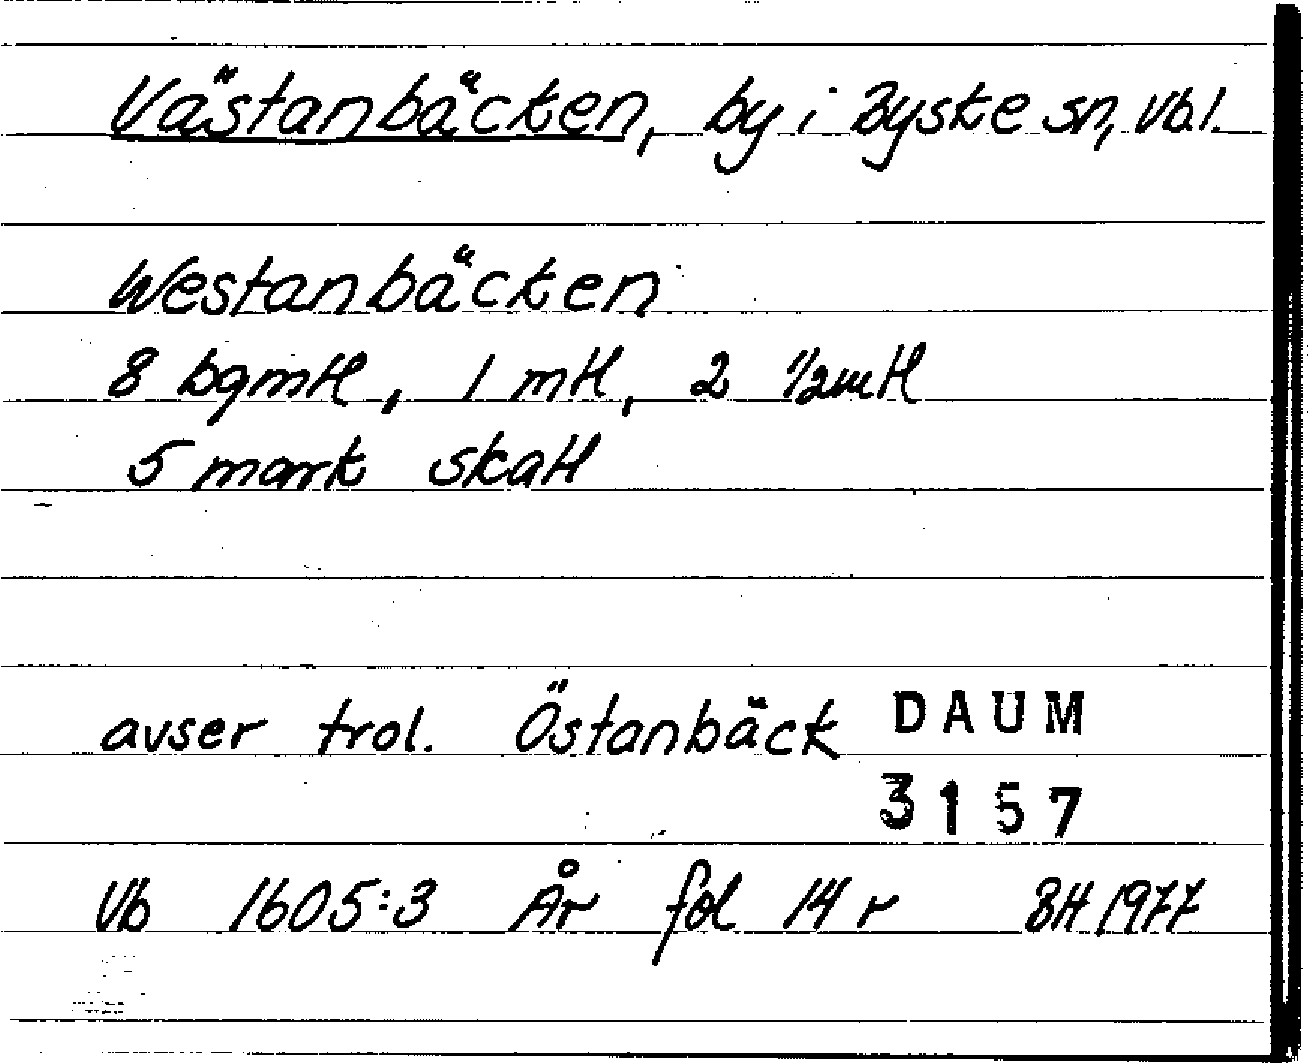 Västanbäcken, by i Byske sn, Vb.l.
Westanbäcken
8 bgmtl, 1 mtl, 2 1/2mtl
5 mark skatt
avser trol. Östanbäck DAUM
3157
Vb 1605:3 År fol 14 r BH 1977